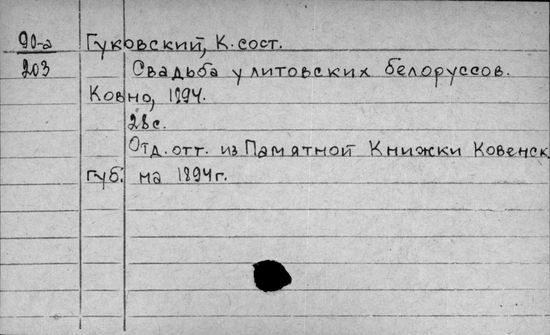 90-а Гуковский, К. сост.
203 Свадьба у литовских белоруссов.
Ковно, 1894.
28 с.
Отд. отт. из Памятной Книжки Ковенск.
губ. на 1894 г.